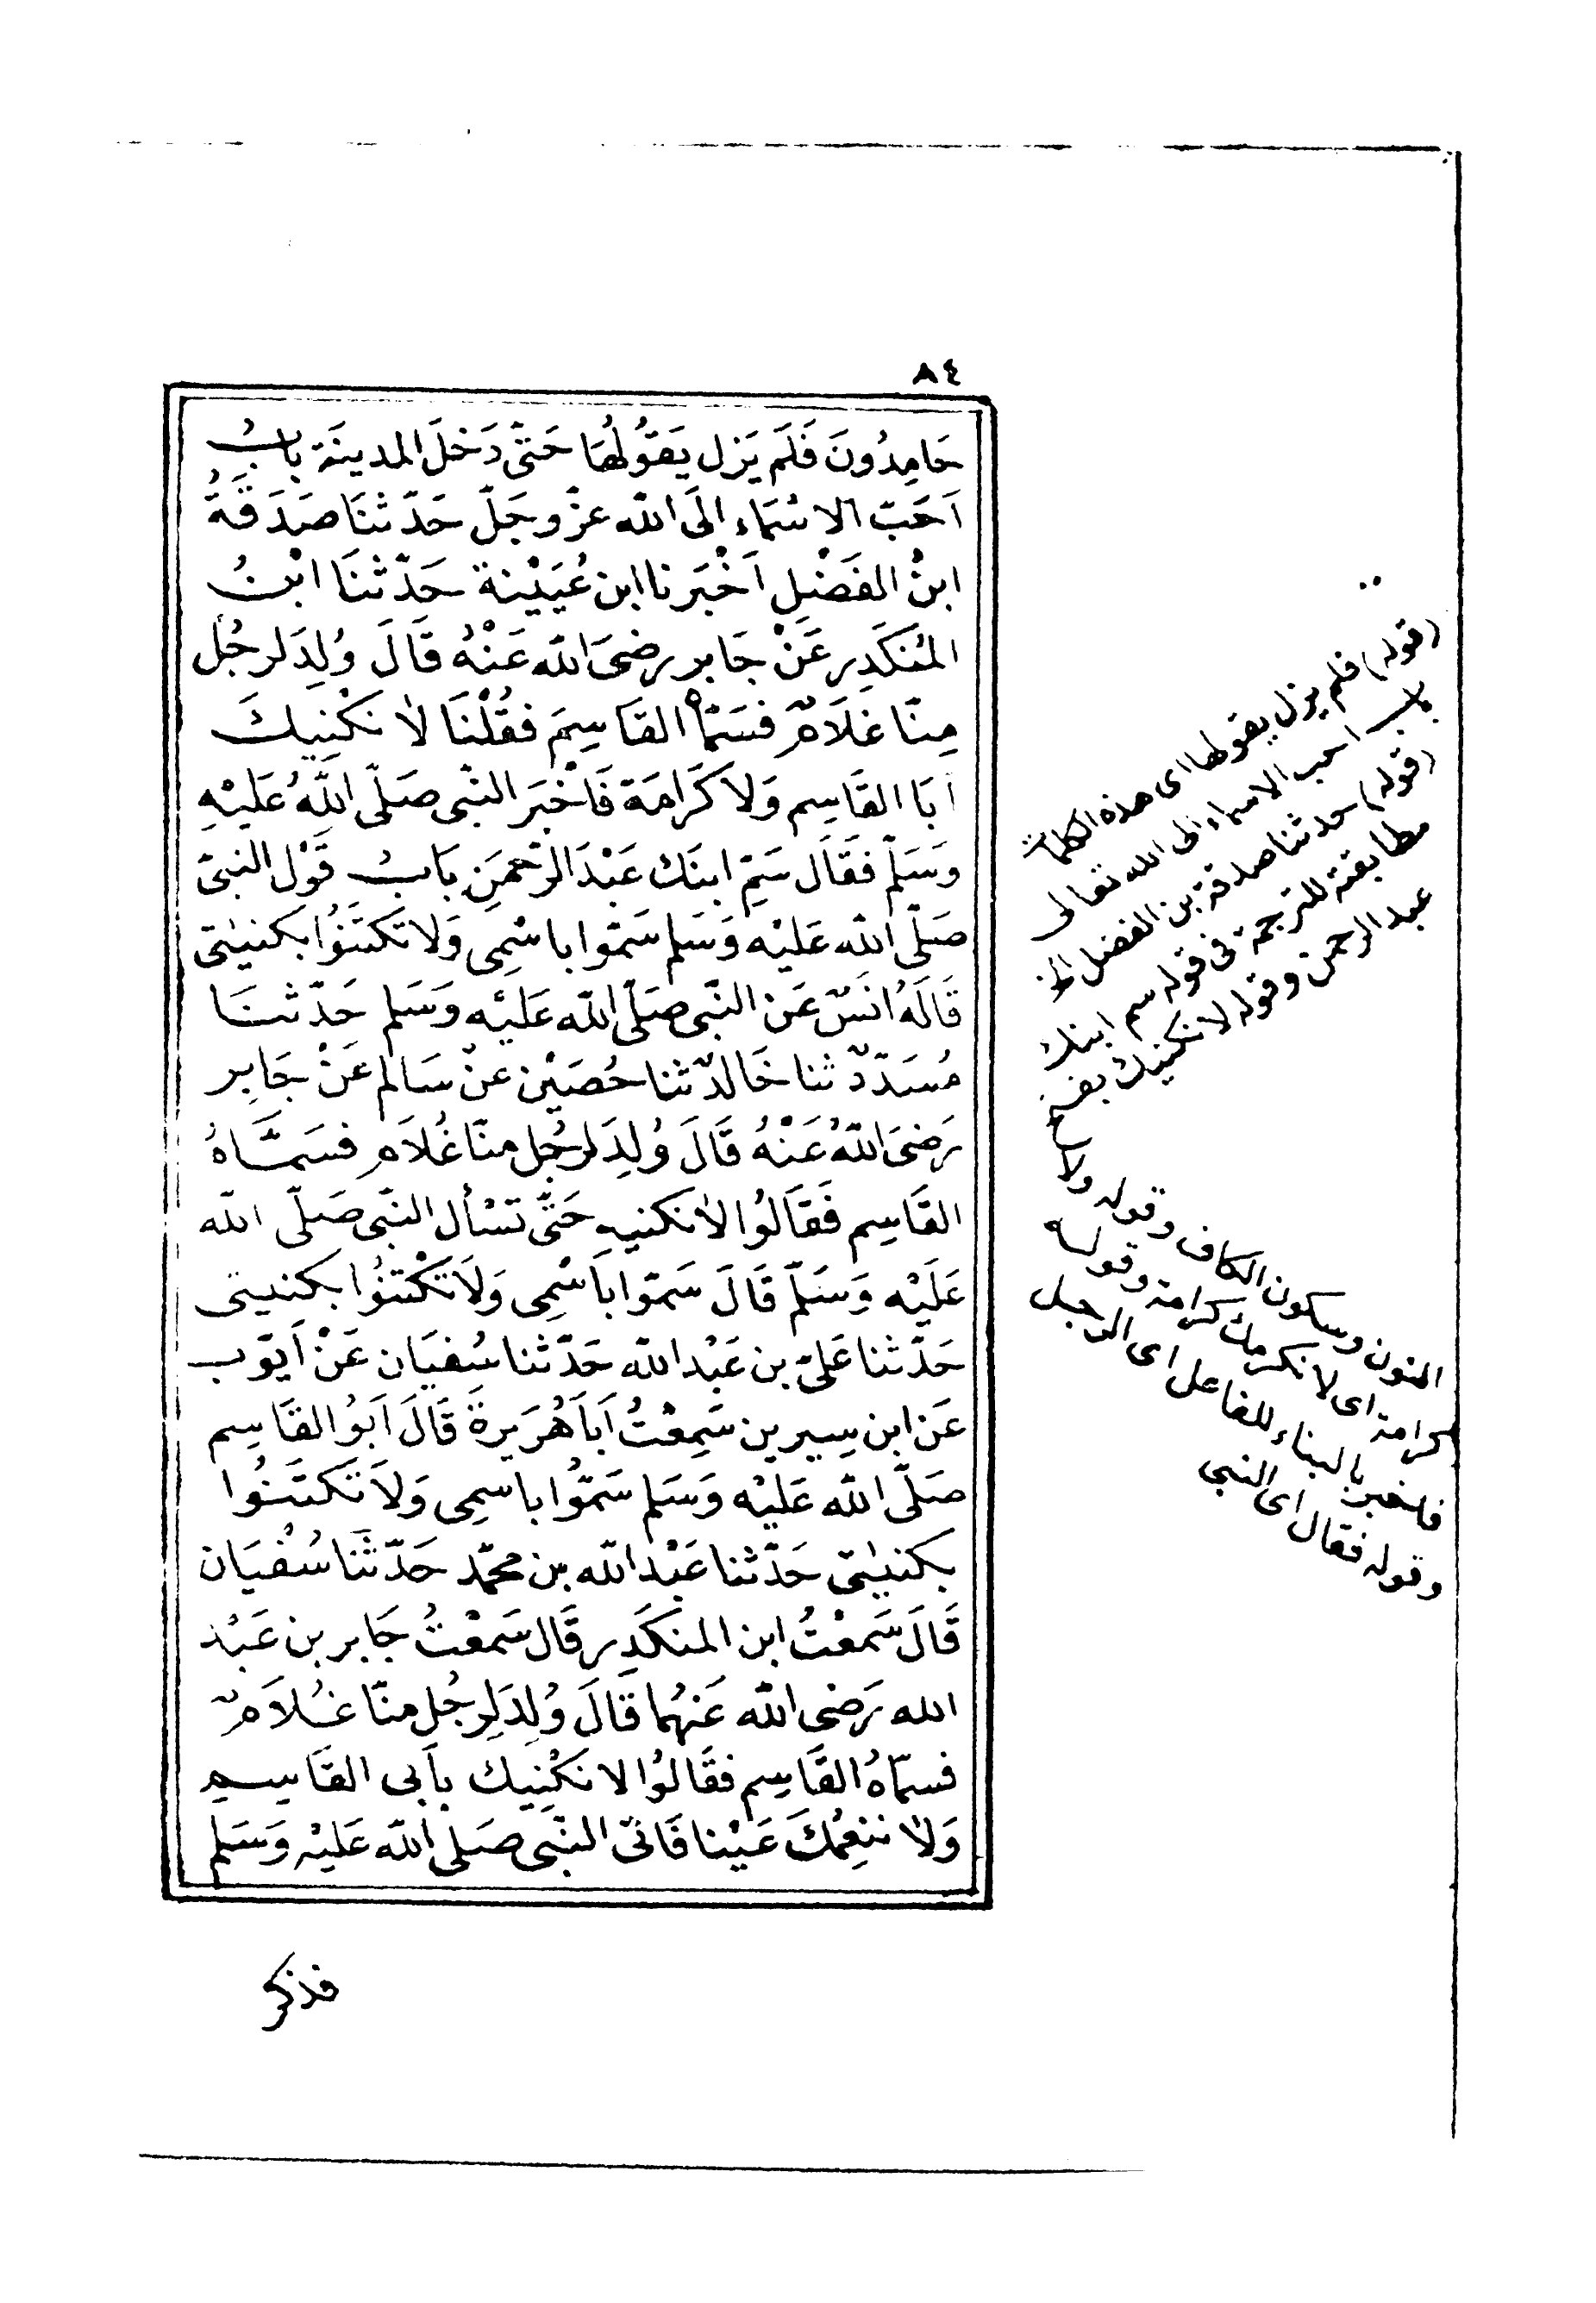 ٨٤
حَامِدُونَ فَلَم يَزل يَقوُلُهَا حَتّى دَخَلَ المدينَة بابُ
اَحَبّ الاسْمَاء الَى الله عزّ وجَلّ حَدّثنَا صَدَقَةُ
ابنُ الفَضْلِ اَخْبَرنا ابن عُيَيْنة حَدّثنَا ابْنُ
المُنكَدِر عَنْ جَابر رضىَ الله عَنْهُ قَالَ وُلِدَ لرجُل
مِنّا غلَامٌ فسَمّاهُ القَاسِمَ فقُلْنَا لا نكْنِيكَ
اَبَا القَاسِم وَلاَ كَرَامَة فَاَخْبَر النّبى صَلّى اللهُ عَلَيْهِ
وَسَلّم فَقَال سَمِّ ابنَك عَبْدَ الرّحمَنِ بَابُ قَوْل النبىّ
صَلّى الله عَليْه وَسَلم سَمّوا باسْمِى وَلا تكتَنُوا بكنيتى
قَالَهُ انَسٌ عَن النّبى صَلّى الله عَليْه وَسَلم حَدّثنَا
مُسَدّدٌ ثنا خَالدٌ ثنا حُصَيْن عنْ سَالم عَنْ جَابِر
رَضىَ اللهُ عَنْهُ قَالَ وُلِدَ لرجُل منّا غُلاَم فسَمّاهُ
القَاسِم فَقَالُوا لا نكنيهِ حَتّى تسْأل النّبى صَلّى الله
عَلَيْه وَسَلّم قَالَ سَمّوا باَسْمِى وَلاَ تَكْتَنُوا بكنيتى
حَدّثنا عَلىّ بن عَبْد الله حَدّثنا سُفيَان عَنْ اَيّوب
عَن ابن سِيرين سَمِعْتُ اَبَا هُرَيرةَ قَالَ اَبُو القَاسِم
صَلّى الله عَليْه وَسَلم سَمُّوا باسمِى وَلاَ تَكتَنُوا
بكنيتى حَدّثنا عَبْد الله بن محمّد حَدّثَنا سُفْيَان
قَالَ سَمعْتُ ابن المنكَدِر قَال سَمعْتُ جَابر بن عَبْد
الله رَضى الله عَنهُما قَالَ وُلِدَ لِرجُل منّا غُلاَمٌ
فسمّاهُ القَاسِم فقَالُوا لا نَكْنِيك بأبى القَاسِم
وَلا ننعِمُكَ عَيْنا فَاتى النّبى صَلى الله عَليْه وَسَلم
فذكر
(قوله) فلم يزل يقولها اى هذه الكلمات
باب احب الاسماء الى الله تعالى
(قوله) حدثنا صدقة بن الفضل الخ
مطابقته للترجمة فى قوله سم ابنك
عبد الرحمن وقوله لا نكنيك بفتح
النون وسكون الكاف وقوله ولا
كرامة اى لا نكرمك كرامة وقوله
فاخبر بالبناء للفاعل اى الرجل
وقوله فقال اى النبى